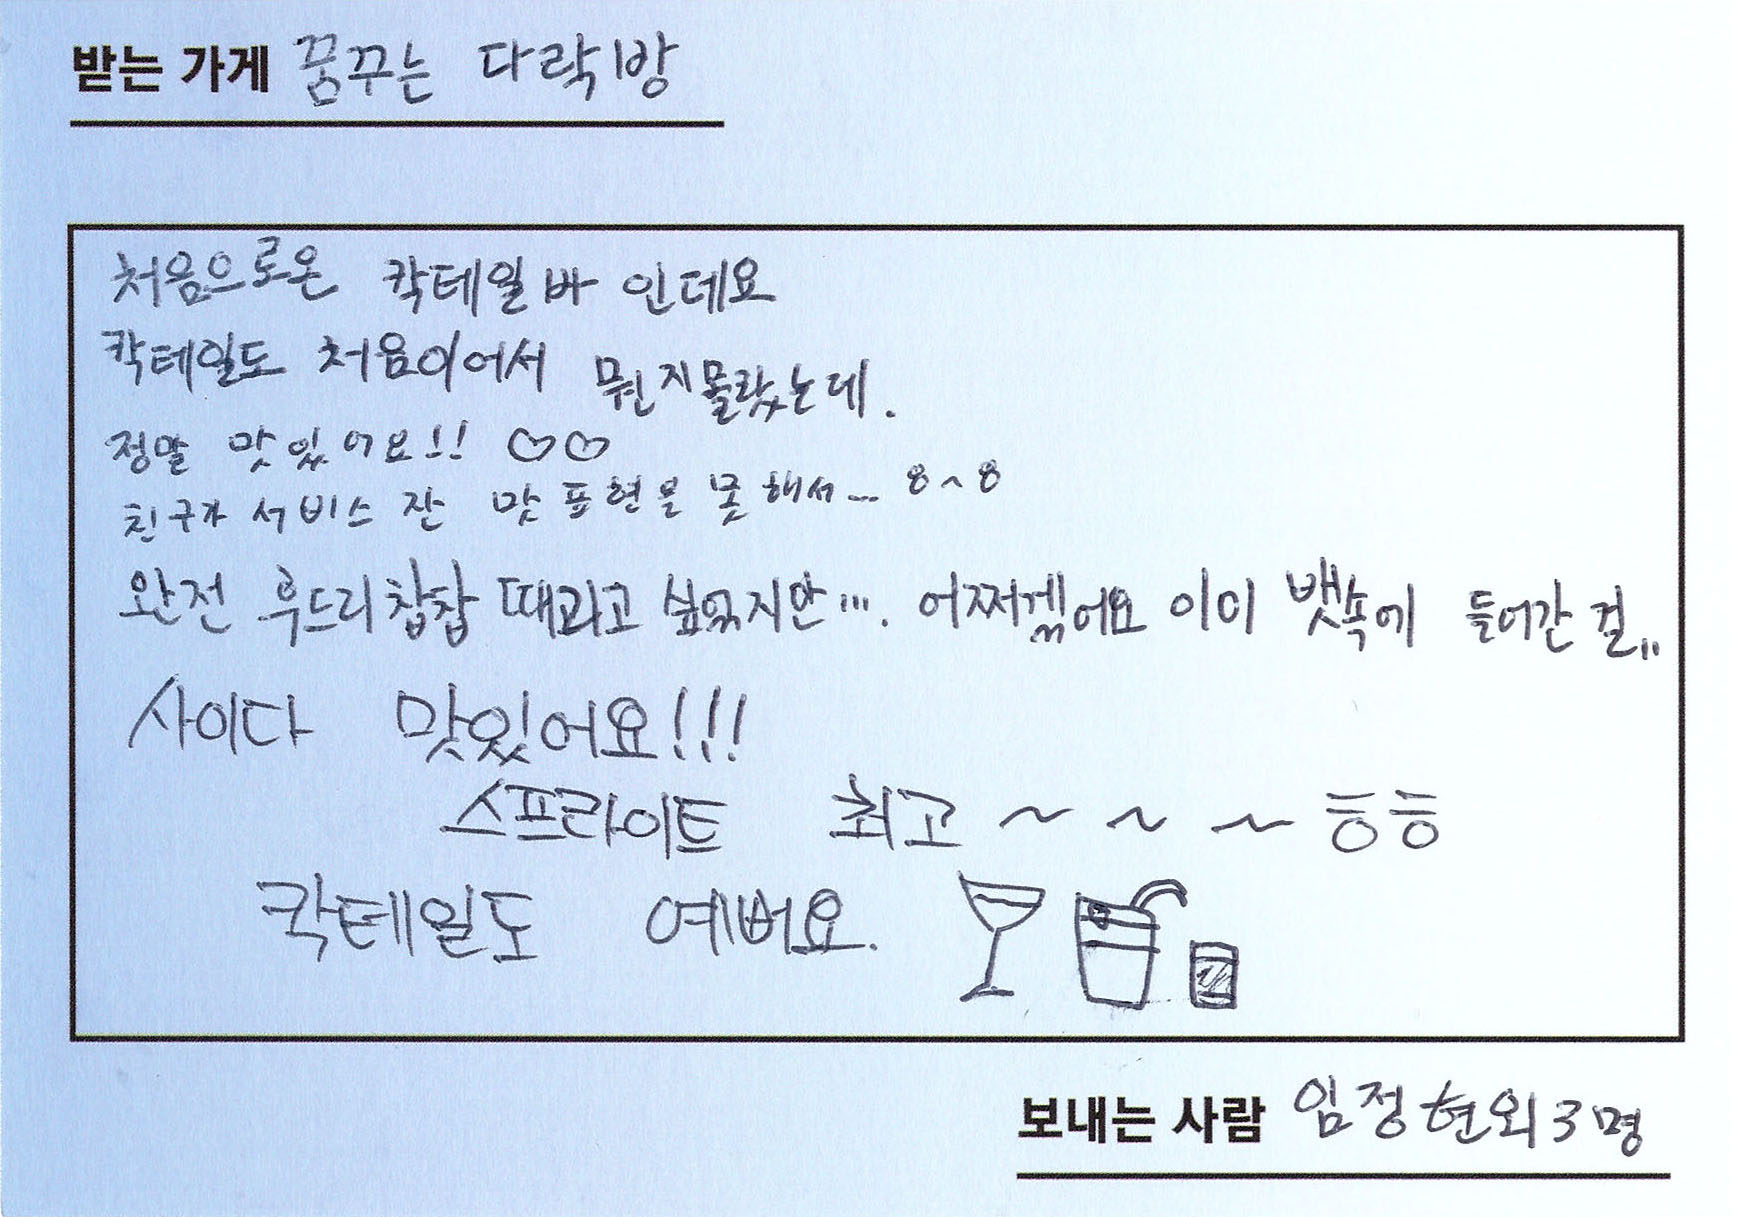 받는 가게 꿈꾸는 다락방
처음으로온 칵테일바 인데요
칵테일도 처음이어서 뭔지몰랐는데.
정말 맛있어요!! ♡♡
친구가 서비스 잔 맛 표현을 못해서... 8~8
완전 후드리찹찹 때리고 싶었지만.... 어쩌겠어요 이미 뱃속에 들어간 걸..
사이다 맛있어요!!!
스프라이트 최고~~~ㅎㅎ
칵테일도 예버요.
보내는 사람 임정현외3명